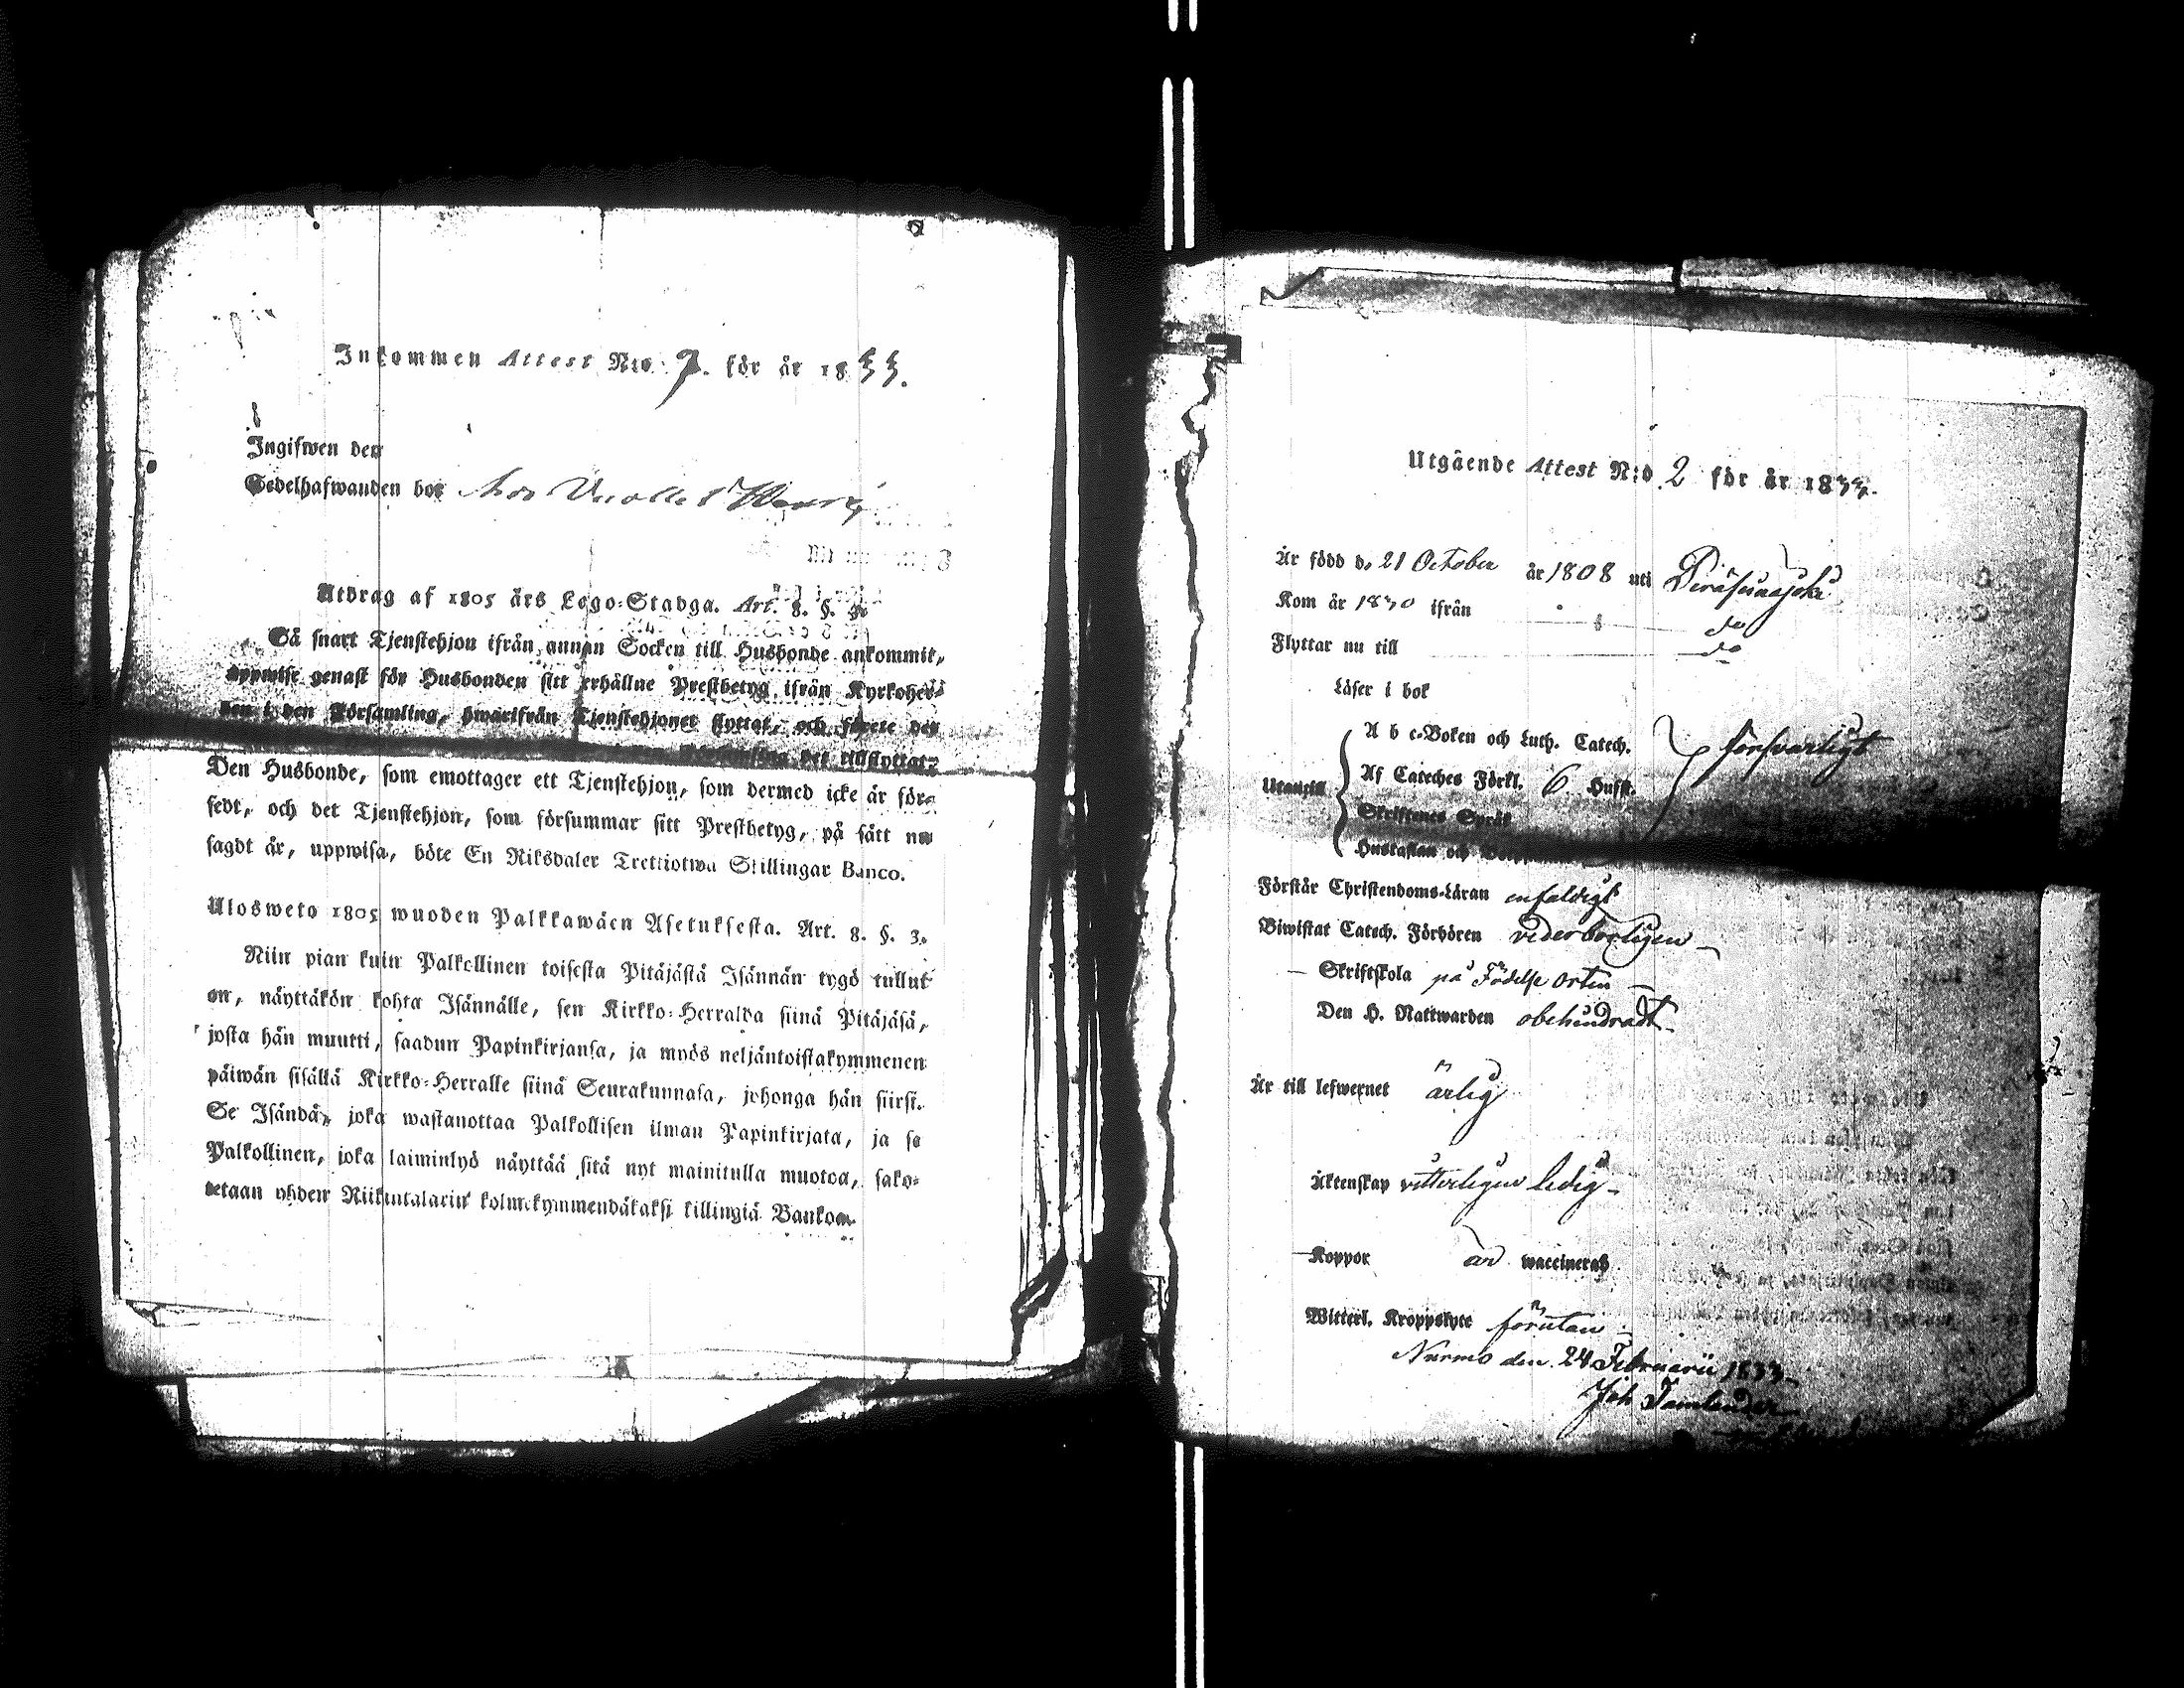 Inkommen Attest N:o 7. för år 1833.
Ingifwen den
Sedelhafwanden bor hos
Utdrag af 1805 års Lego-Stadga. Art. 8. §. 3.
Så snart Tjenstehjon ifrån annan Socken till Husbonde ankommit,
uppwise genast för Husbonden sitt erhållne Prestbetyg ifrån Kyrkoher-
den i den Församling, hwarifrån Tjenstehjonet flyttat, och förete det
det tillflyttat;
Den Husbonde, som emottager ett Tjenstehjon, som dermed icke är för-
sedt, och det Tjenstehjon, som försummar sitt Prestbetyg, på sätt nu
sagdt är, uppwisa, böte En Riksdaler Trettiotwå Skillingar Banco.
Ulosweto 1805 wuoden Palkkawäen Asetuksesta. Art. 8. §. 3.
Niin pian kuin Palkollinen toisesta Pitäjästä Isännän tygö tullut
on, näyttäkön kohta Isännälle, sen Kirkko-Herralda siinä Pitäjäsä,
josta hän muutti, saadun Papinkirjansa, ja myös neljäntoistakymmenen
päiwän sisällä Kirkko-Herralle siinä Seurakunnasa, johonga hän siirsi.
Se Isändä, joka wastanottaa Palkollisen ilman Papinkirjata, ja se
Palkollinen, joka laiminlyö näyttää sitä nyt mainitulla muotoa, sako-
tetaan yhden Riikintalarin kolmekymmendäkaksi killingiä Bankoa.
Utgående Attest N:o 2 för år 1833.
Är född d. 21 October år 1808 uti
Kom år 1830 ifrån do
Flyttar nu till do
Läser i bok
A b c-Boken och Luth. Catech. försvarligt
Utantill Af Cateches Förkl. 6 Hufst.
Skriftenes Språk
Hustaflan och
Förstår Christendoms-Läran enfaldigt
Biwistat Catech. Förhören vederbörligen
— Skriftskola på Födelse orten
Den H. Nattwarden obehindradt
Är till lefwernet ärlig
Äktenskap vitterligen ledig
Koppor är waccinerad
Witterl. Kroppslyte förutan
Nurmo den 24 Februarii 1833
Joh Tamlander